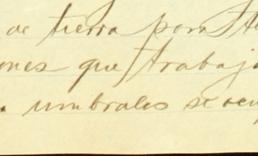 de tierra para te
ones que trabaja
umbrales se ocu